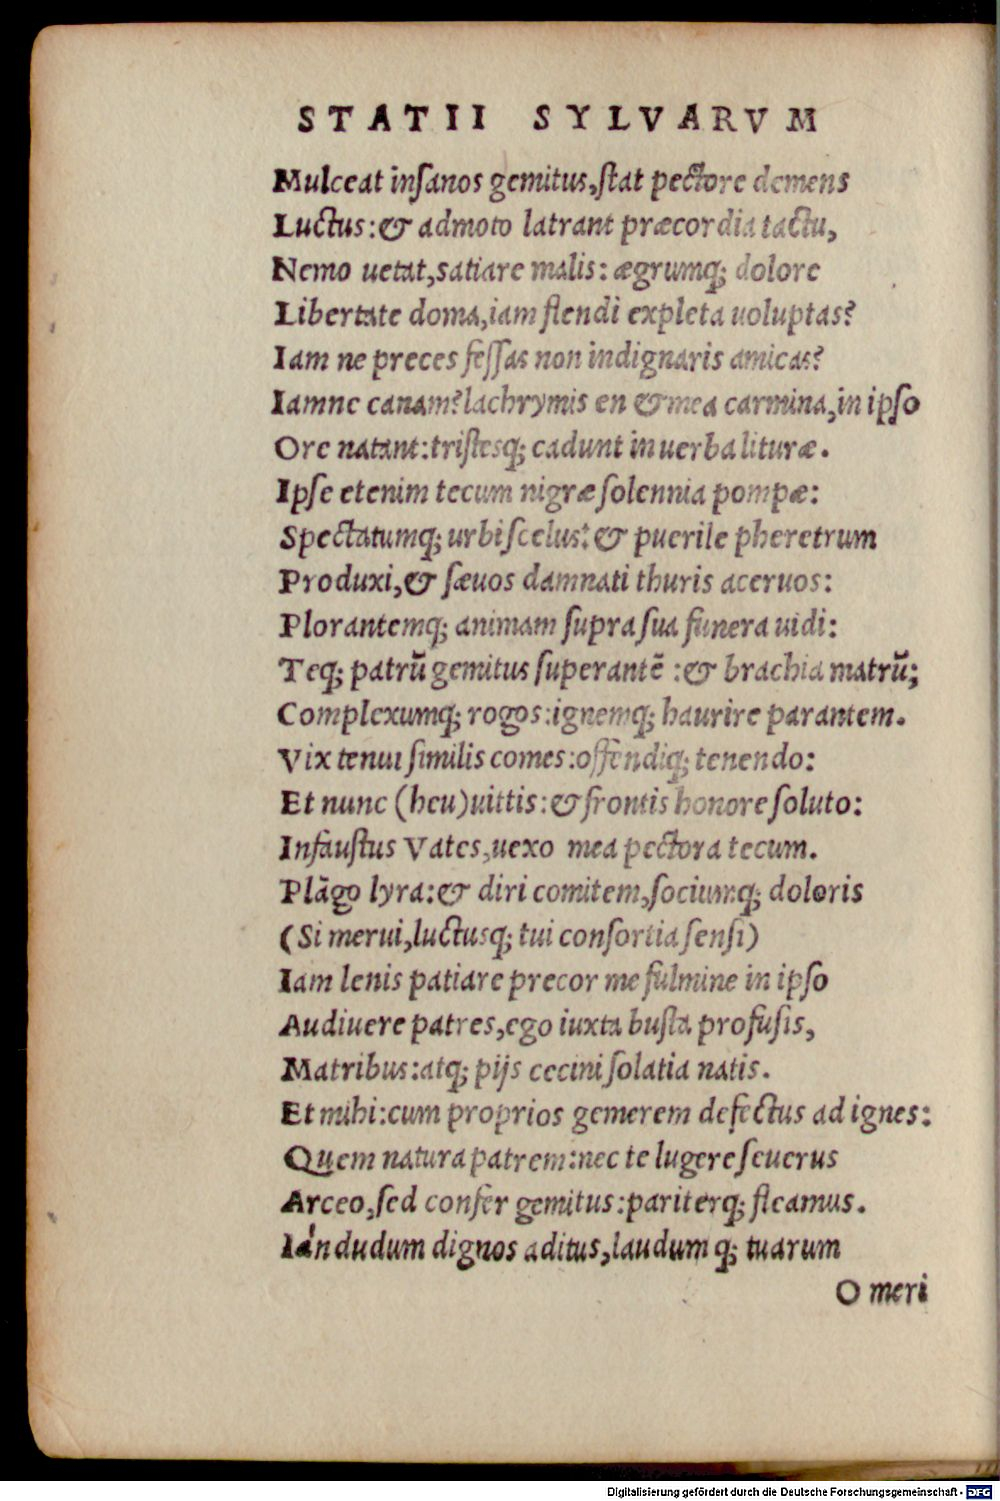 STATII SYLVARVM
Mulceat inſanos gemitus,ſtat pectore demens
Luctus:& admoto latrant præcordia tactu,
Nemo uetat,satiare malis: ægrumq; dolore
Libertate doma,iam flendi expleta uoluptas?
Iam ne preces feſſas non indignaris amicas?
Iamne canam?lachrymis en & mea carmina,in ipſo
Ore natant:triſtesq; cadunt in uerba lituræ.
Ipſe etenim tecum nigræ ſolennia pompæ:
Spectatumq; urbi ſcelus:& puerile pheretrum
Produxi,& ſæuos damnati thuris aceruos:
Plorantemq; animam ſupra ſua funera uidi:
Teq; patrũ gemitus ſuperantẽ :& brachia matrũ;
Complexumq; rogos:ignemq; haurire parantem.
Vix tenui ſimilis comes:offendiq; tenendo:
Et nunc (heu)uittis:& frontis honore ſoluto:
Infauſtus Vates,uexo mea pectora tecum.
Plãgo lyra:& diri comitem,ſociumq; doloris
(Si merui,luctusq; tui conſortia ſenſi)
Iam lenis patiare precor me fulmine in ipſo
Audiuere patres,ego iuxta buſta profuſis,
Matribus:atq; pijs cecini ſolatia natis.
Et mihi:cum proprios gemerem defectus ad ignes:
Quem natura patrem:nec te lugere ſeuerus
Arceo,ſed confer gemitus:pariterq; fleamus.
Iandudum dignos aditus,laudumq; tuarum
O meri
Digitalisierung gefördert durch die Deutsche Forschungsgemeinschaft - DFG